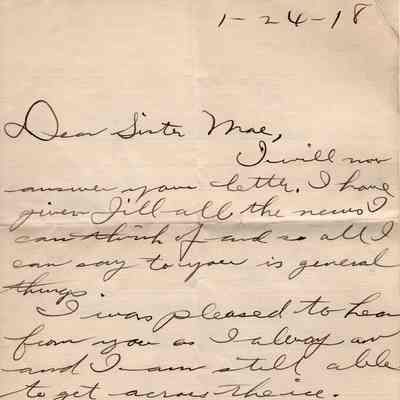 1-24-18
Dear Sister Mae,
I will now
answer your letter. I have
given Jill all the news I
can think of and so all I
can say to you is general
things.
I was pleased to hear
from you as I alway am
and I am still able
to get across the ice.